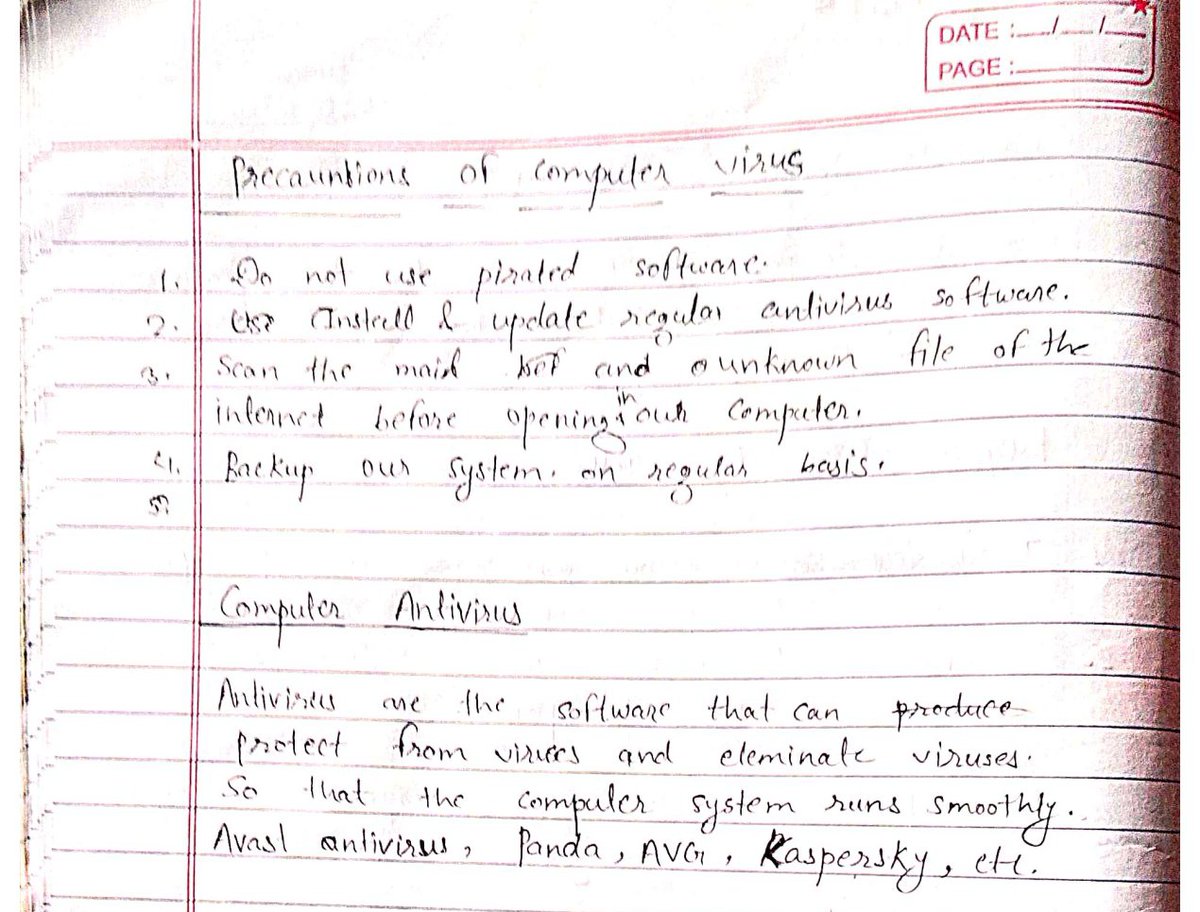 DATE : __/__/__
PAGE : ____
Precauntions of computer virus
1. Do not use pirated software.
2. Install & update regular antivirus software.
3. Scan the mail and unknown file of the
internet before opening in our computer.
4. Backup our system. on regular basis.
5.
Computer Antivirus
Antivirus are the software that can produce
protect from viruses and eleminate viruses.
So that the computer system runs smoothly.
Avast antivirus, Panda, AVG, Kaspersky, etc.